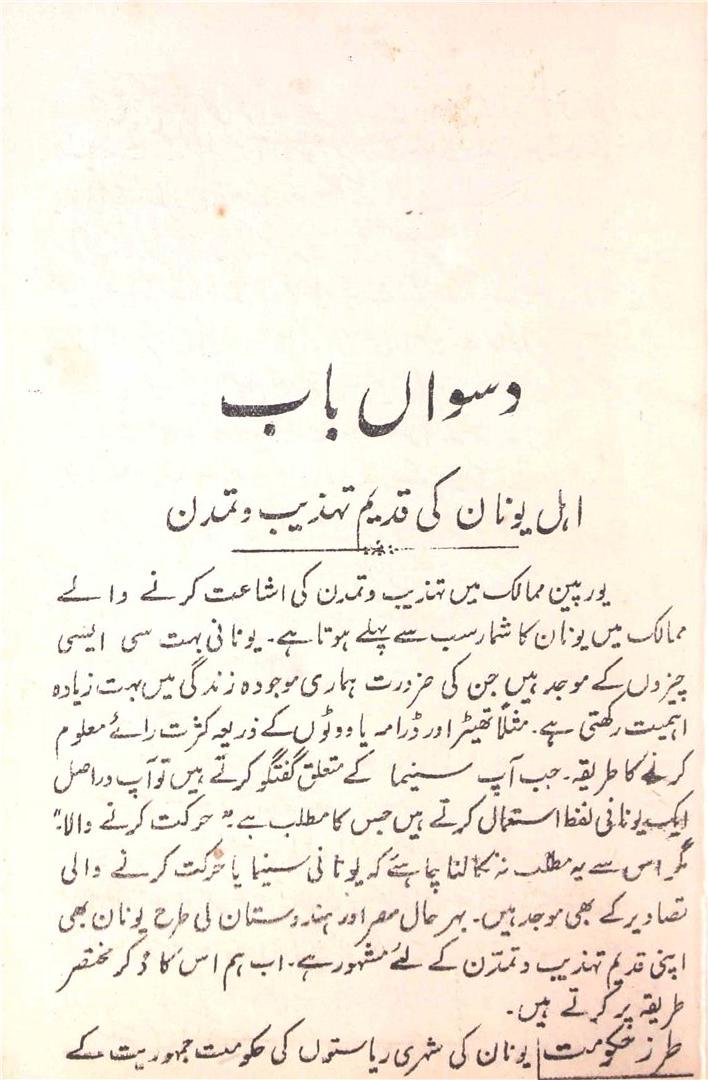 دسواں باب
اہل یونان کی قدیم تہذیب و تمدن
یورپین ممالک میں تہذیب و تمدن کی اشاعت کرنے والے
ممالک میں یونان کا شمار سب سے پہلے ہوتا ہے۔ یونانی بہت سی ایسی
چیزوں کے موجد ہیں جن کی ضرورت ہماری موجودہ زندگی میں بہت زیادہ
اہمیت رکھتی ہے۔ مثلاً تھیٹر اور ڈرامہ یا ووٹوں کے ذریعہ کثرت رائے معلوم
کرنے کا طریقہ۔ جب آپ سنیما کے متعلق گفتگو کرتے ہیں تو آپ دراصل
ایک یونانی لفظ استعمال کرتے ہیں جس کا مطلب ہے "حرکت کرنے والا"
مگر اس سے یہ مطلب نہ نکالنا چاہئے کہ یونانی سنیما یا حرکت کرنے والی
تصاویر کے بھی موجد ہیں۔ بہرحال مصر اور ہندوستان کی طرح یونان بھی
اپنی قدیم تہذیب و تمدّن کے لئے مشہور ہے۔ اب ہم اس کا ذکر مختصر
طریقہ پر کرتے ہیں۔
طرز حکومت یونان کی شہری ریاستوں کی حکومت جمہوریت کے